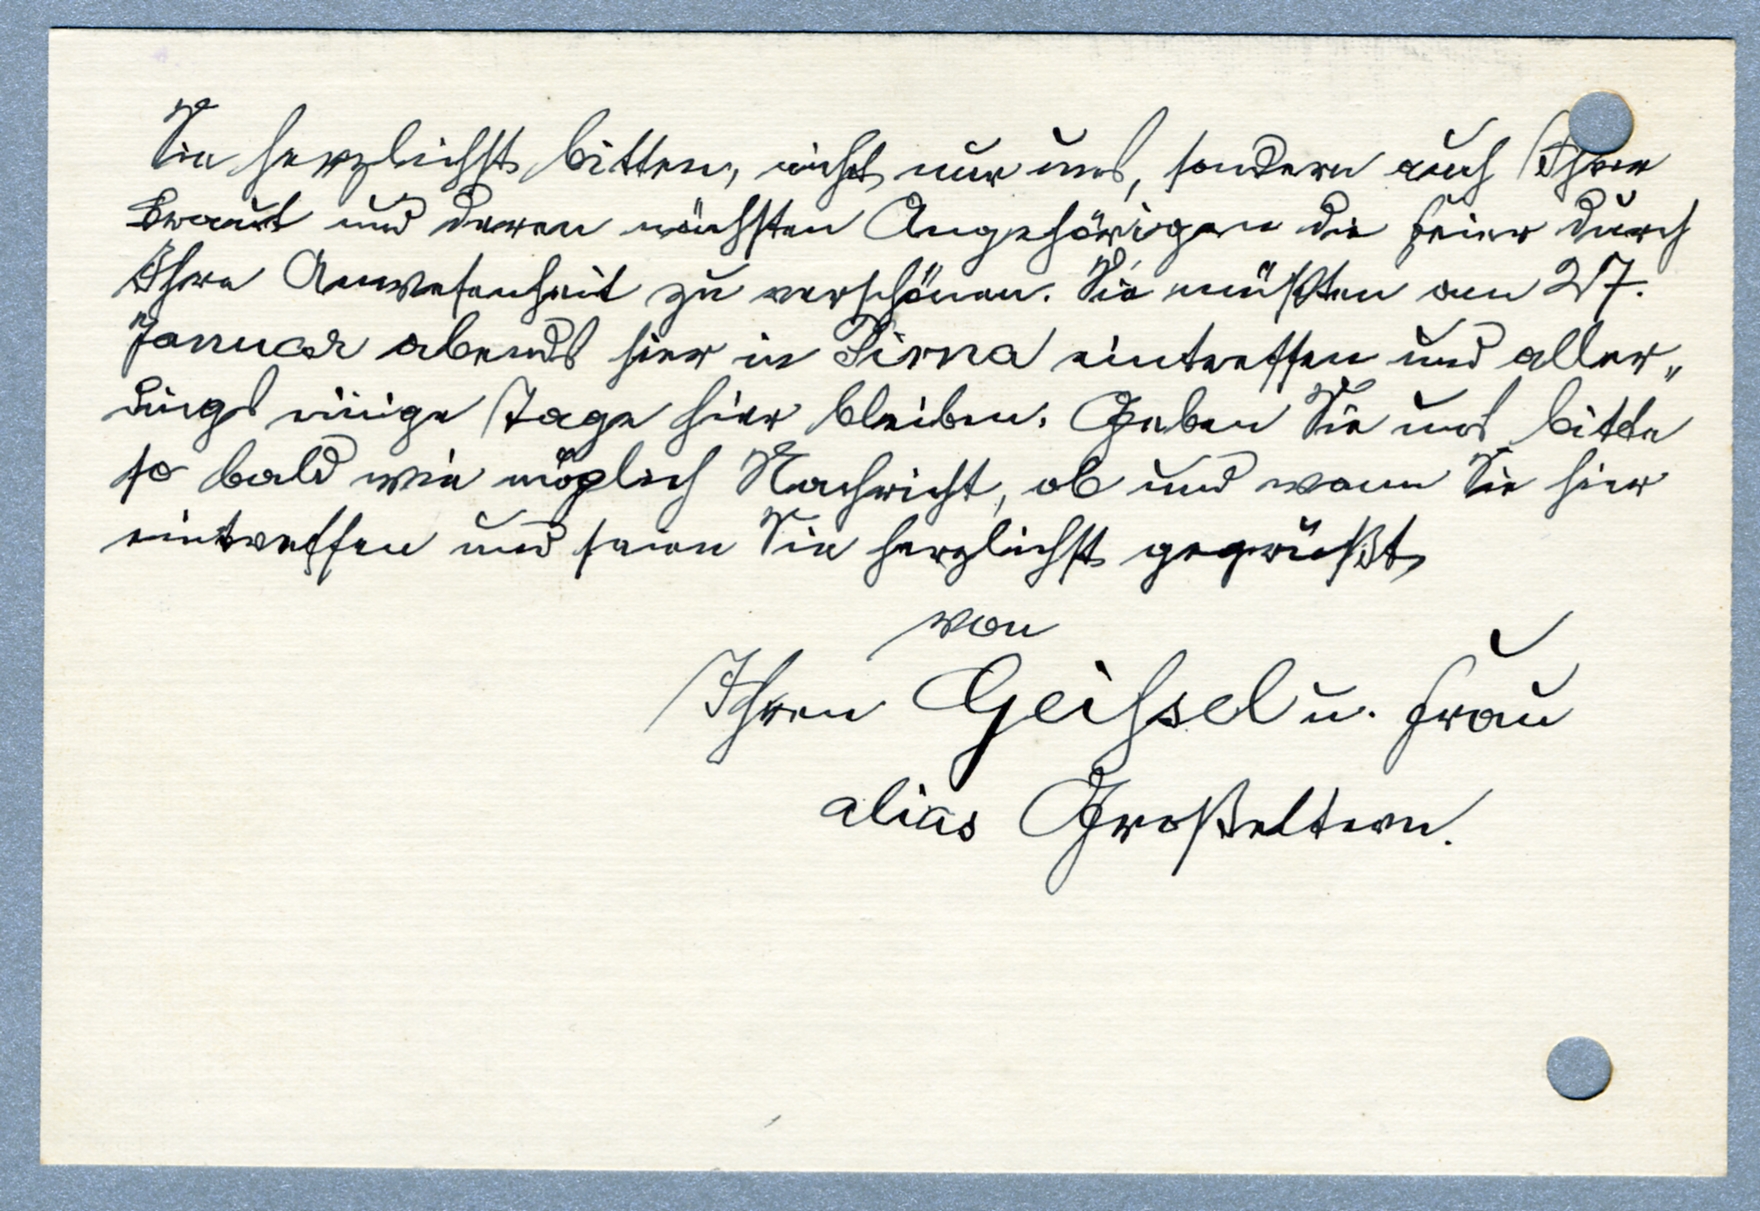 Sie herzlichst bitten, nicht nur uns, sondern auch Ihre
Braut und deren nächsten Angehörigen die Feier durch
Ihre Anwesenheit zu verschönen. Sie müßten am 27.
Januar abends hier in Pirna eintreffen und aller„
dings einige Tage hier bleiben. Geben Sie uns bitte
so bald wie möglich Nachricht, ob und wann Sie hier
eintreffen und seien Sie herzlichst gegrüßt
von
Ihren Geihsel u. Frau
alias Großeltern.